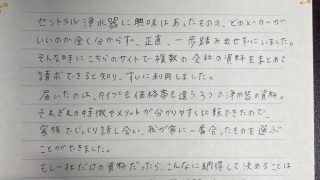 セントラル浄水器に興味はあったものの、どのメーカーが
いいのか全く分からず、正直、一歩踏み出せずにいました。
そんな時にこちらのサイトで複数の会社の資料をまとめて
請求できると知り、すぐに利用しました。
届いたのは、タイプも価格帯も違う3つの浄水器の資料。
それぞれの特徴やメリットが分かりやすく比較できたので、
家族でじっくり話し合い、我が家に一番合ったものを選ぶ
ことができました。
もし一社だけの資料だったら、こんなに納得して決めることは